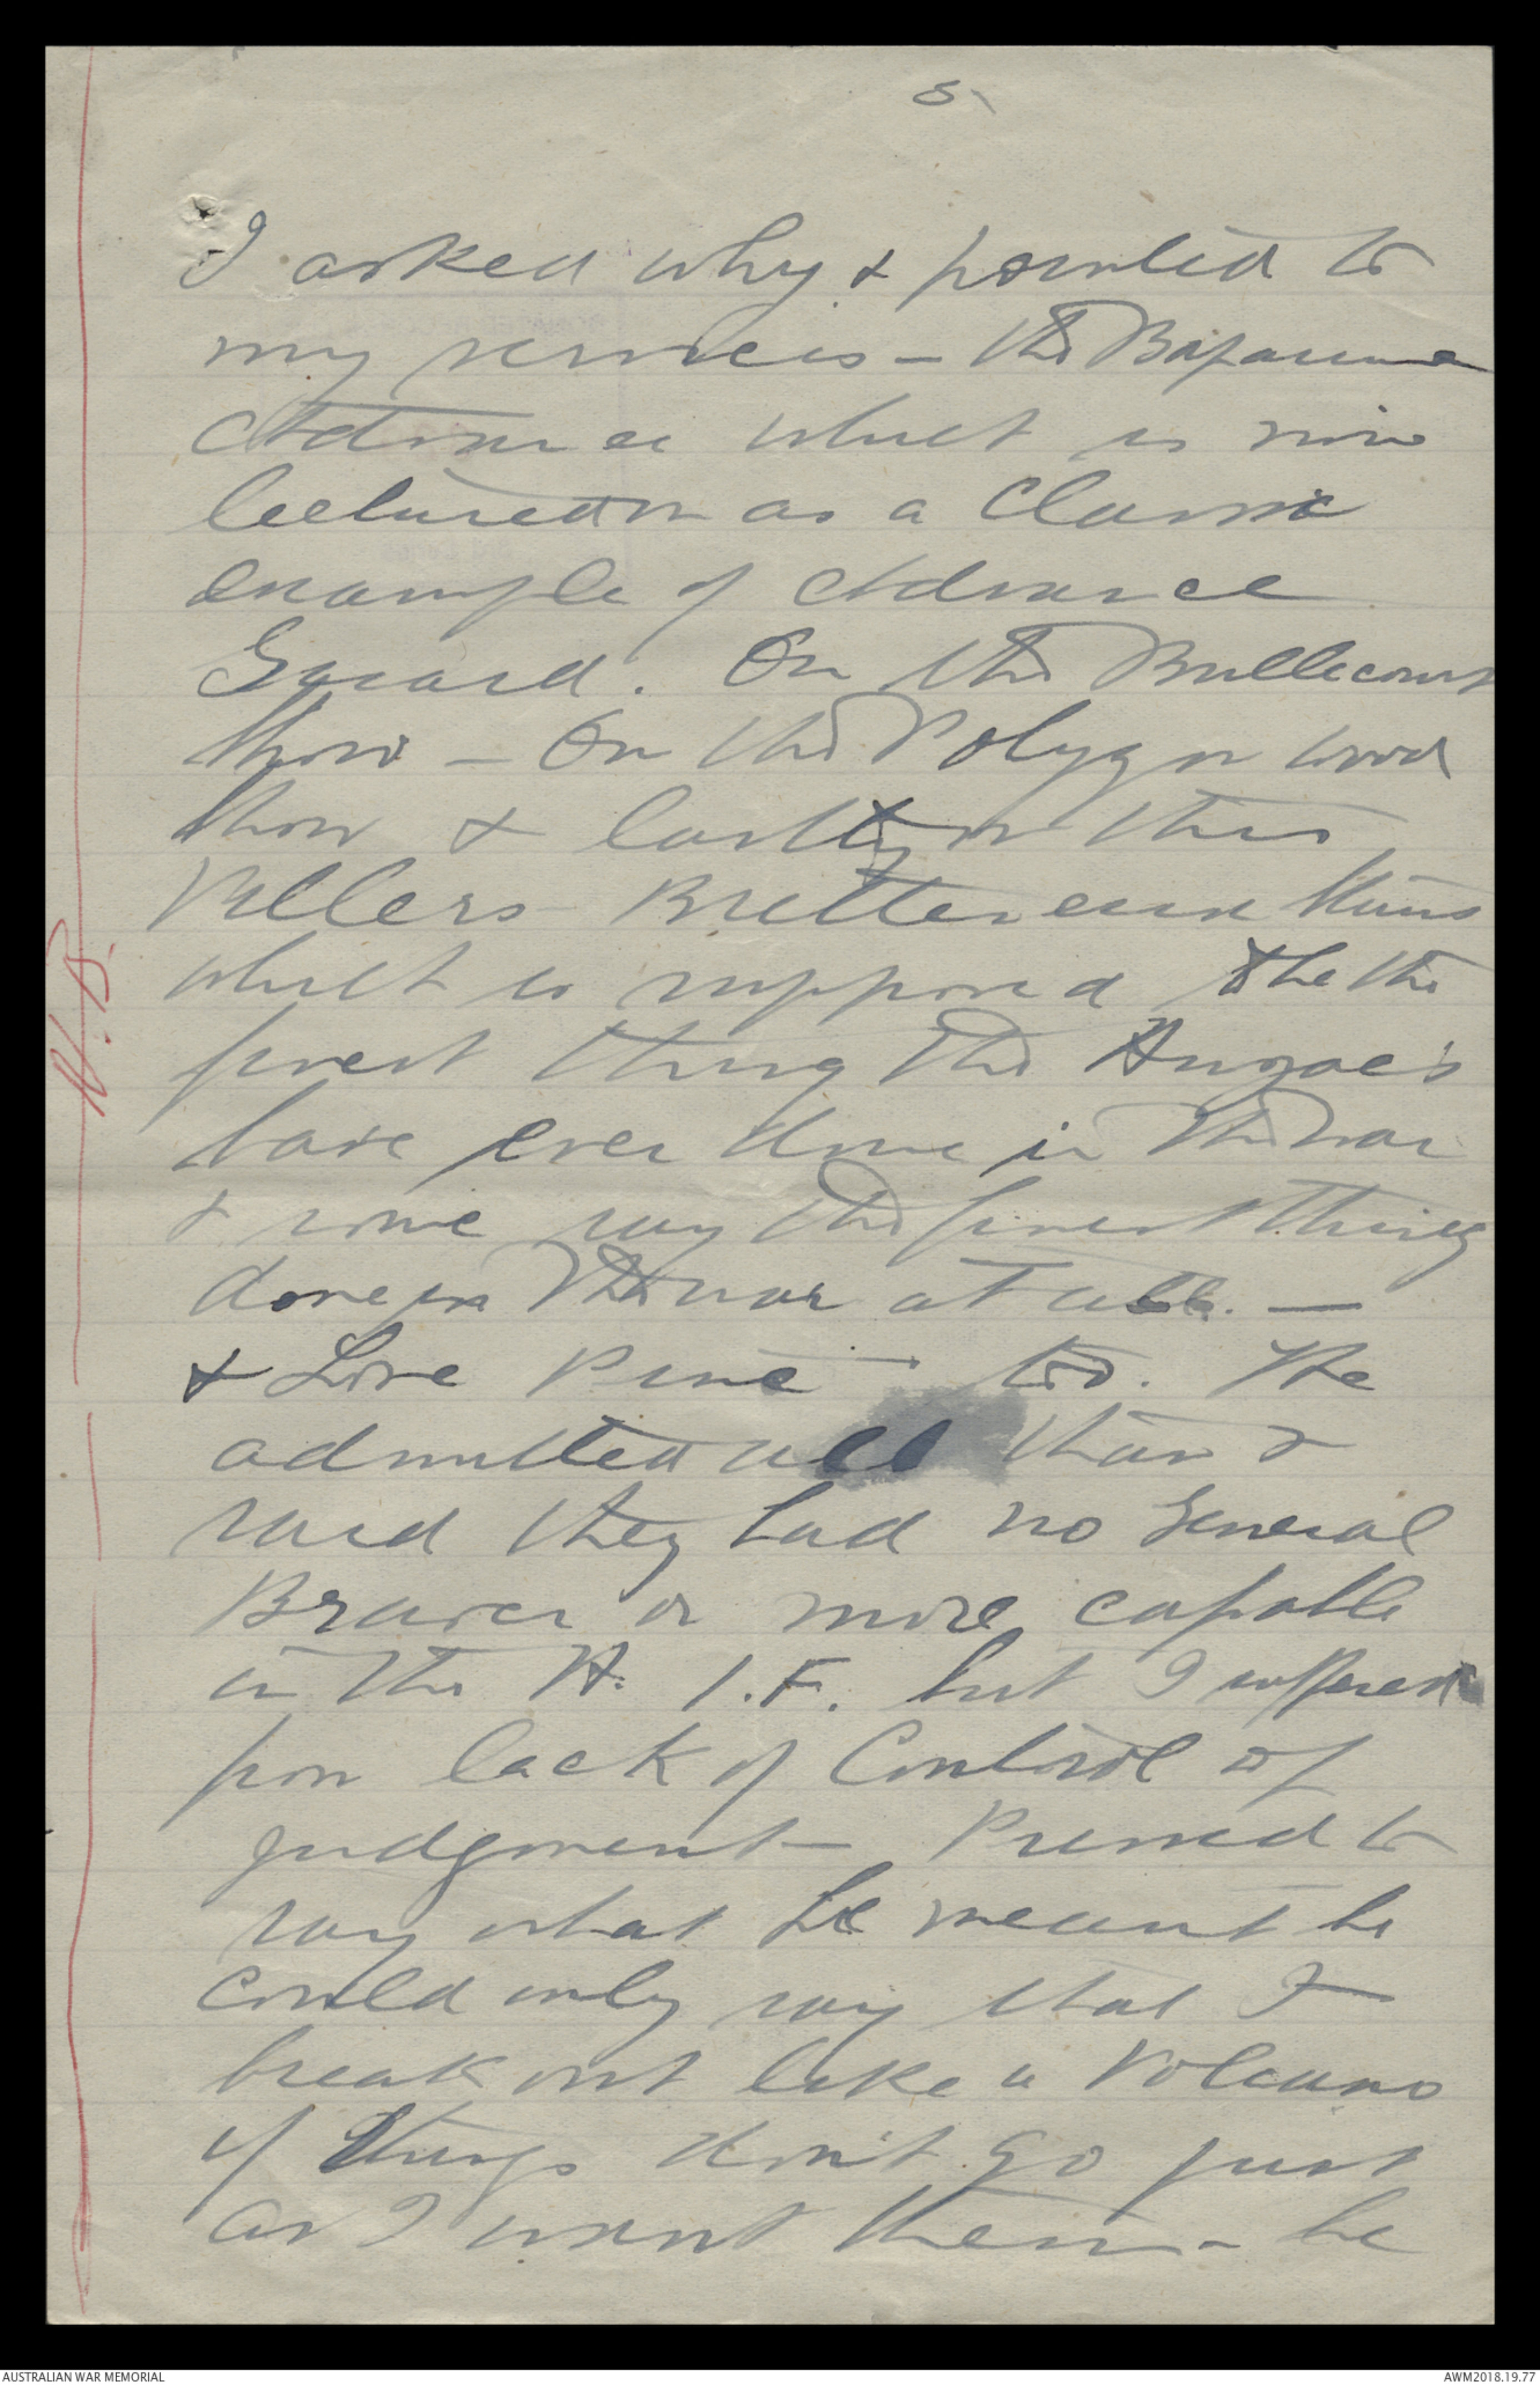 5.
I asked why & pointed to
my services - the Bapaume
Advance which is now
lectured on as a Classic
example of Advance
Guard. On the Bullecourt
show - On the Polygon wood
show & lastly on this
Villers Bretteneaux Stunt
which is supposed to be the
finest thing the Anzac's
have ever done in the war
& some say the finest thing
done in the war at all. —
& Lone Pine - too. He
admitted all this &
said they had no General
Braver or more capable
in the A. I. F. but I suffered
from lack of Control of
judgment - Pressed to
say what he meant he
could only say that I
break out like a Volcano
if things don't go just
as I want them - he
N.B.
AUSTRALIAN WAR MEMORIAL
AWM2018.19.77